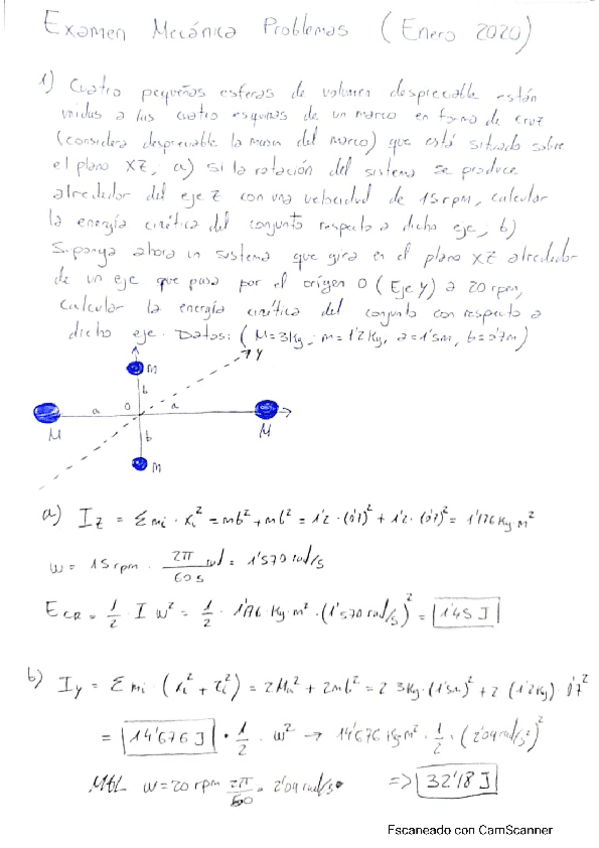 Examen Mecánica Problemas (Enero 2020)
1) Cuatro pequeñas esferas de volumen despreciable están
unidas a las cuatro esquinas de un marco en forma de cruz
(considera despreciable la masa del marco) que está situado sobre
el plano XZ, a) si la rotación del sistema se produce
alrededor del eje Z con una velocidad de 15rpm, calcular
la energía cinética del conjunto respecto a dicho eje, b)
Suponga ahora un sistema que gira en el plano XZ alrededor
de un eje que pasa por el origen O (Eje Y) a 20 rpm,
calcular la energía cinética del conjunto con respecto a
dicho eje. Datos: (M=3Kg, m=1'2Kg, a=1'5m, b=0'7m)
Y
m
b
a O a
M b M
m
a) Iz = Σmi · xi² = mb² + mb² = 1'2 · (0'7)² + 1'2 · (0'7)² = 1'176 Kg·m²
w = 15rpm · 2π/60s rad = 1'570 rad/s
ECR = 1/2 · I w² = 1/2 · 1'176 Kg·m² · (1'570 rad/s)² = 1'45 J
b) Iy = Σmi (xi² + zi²) = 2Ma² + 2mb² = 2 3Kg·(1'5m)² + 2 (1'2Kg) 0'7²
= 14'676 J · 1/2 · w² → 14'676 Kg·m² · 1/2 · (2'04 rad/s²)²
w=20 rpm 2π/60 = 2'04 rad/s => 32'18 J
Escaneado con CamScanner